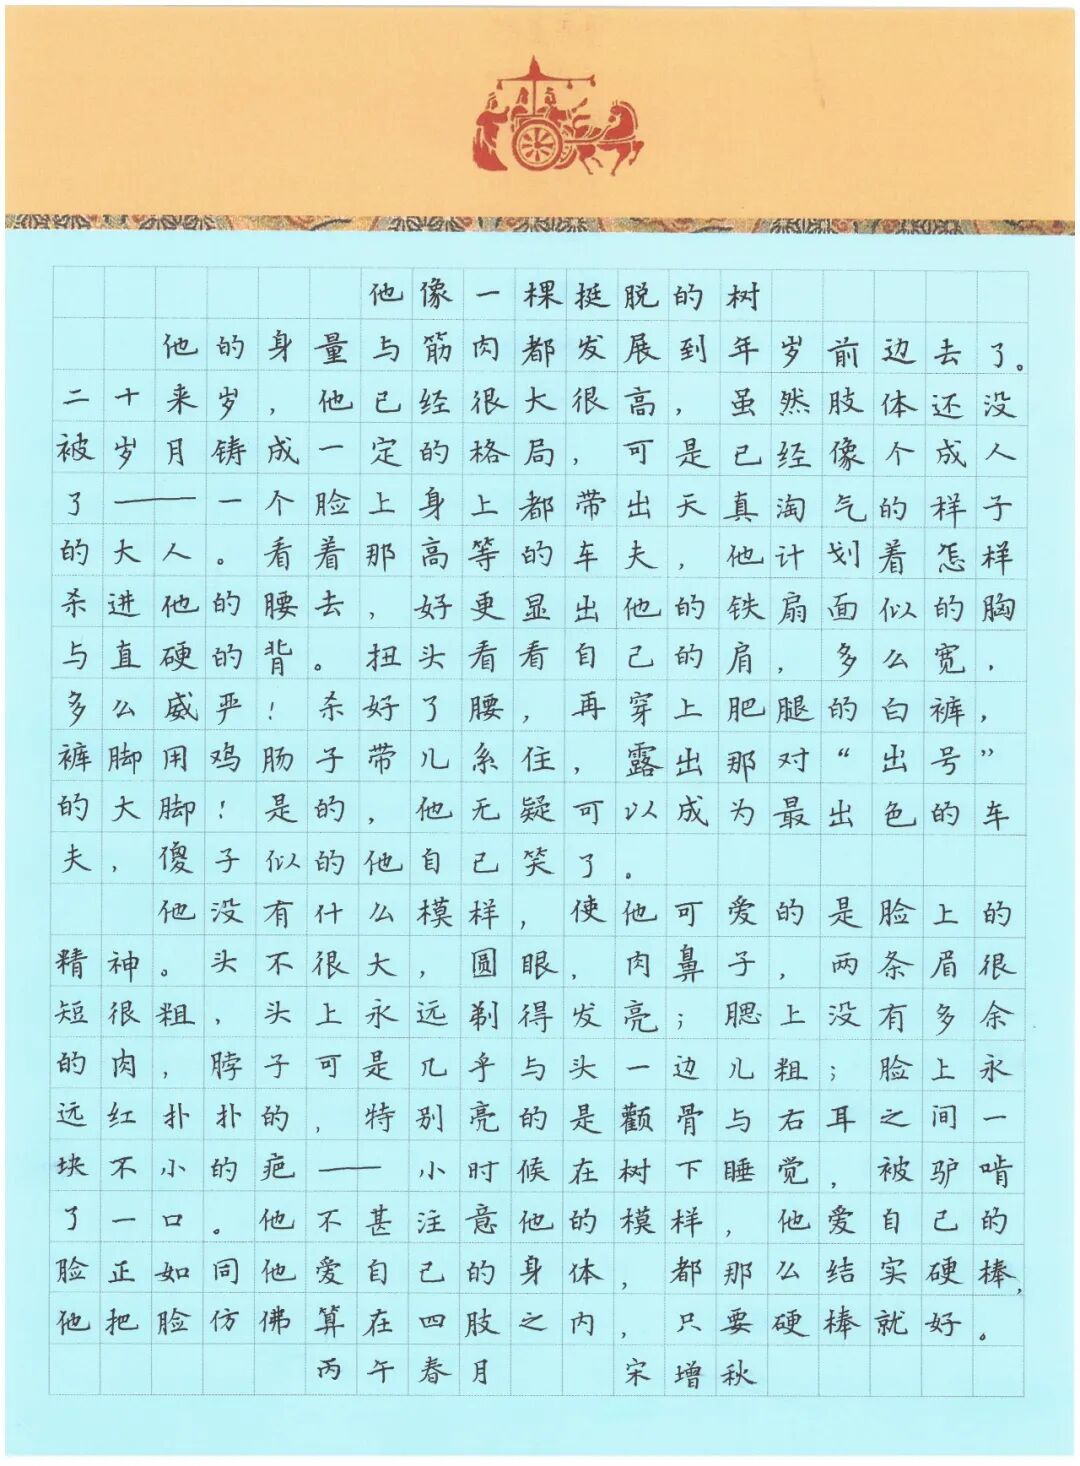 他像一棵挺脱的树
他的身量与筋肉都发展到年岁前边去了。
二十来岁，他已经很大很高，虽然肢体还没
被岁月铸成一定的格局，可是已经像个成人
了——一个脸上身上都带出天真淘气的样子
的大人。看着那高等的车夫，他计划着怎样
杀进他的腰去，好更显出他的铁扇面似的胸
与直硬的背。扭头看看自己的肩，多么宽，
多么威严！杀好了腰，再穿上肥腿的白裤，
裤脚用鸡肠子带儿系住，露出那对“出号”
的大脚！是的，他无疑可以成为最出色的车
夫，傻子似的他自己笑了。
他没有什么模样，使他可爱的是脸上的
精神。头不很大，圆眼，肉鼻子，两条眉很
短很粗，头上永远剃得发亮；腮上没有多余
的肉，脖子可是几乎与头一边儿粗；脸上永
远红扑扑的，特别亮的是颧骨与右耳之间一
块不小的疤——小时候在树下睡觉，被驴啃
了一口。他不甚注意他的模样，他爱自己的
脸正如同他爱自己的身体，都那么结实硬棒，
他把脸仿佛算在四肢之内，只要硬棒就好。
丙午春月 宋增秋